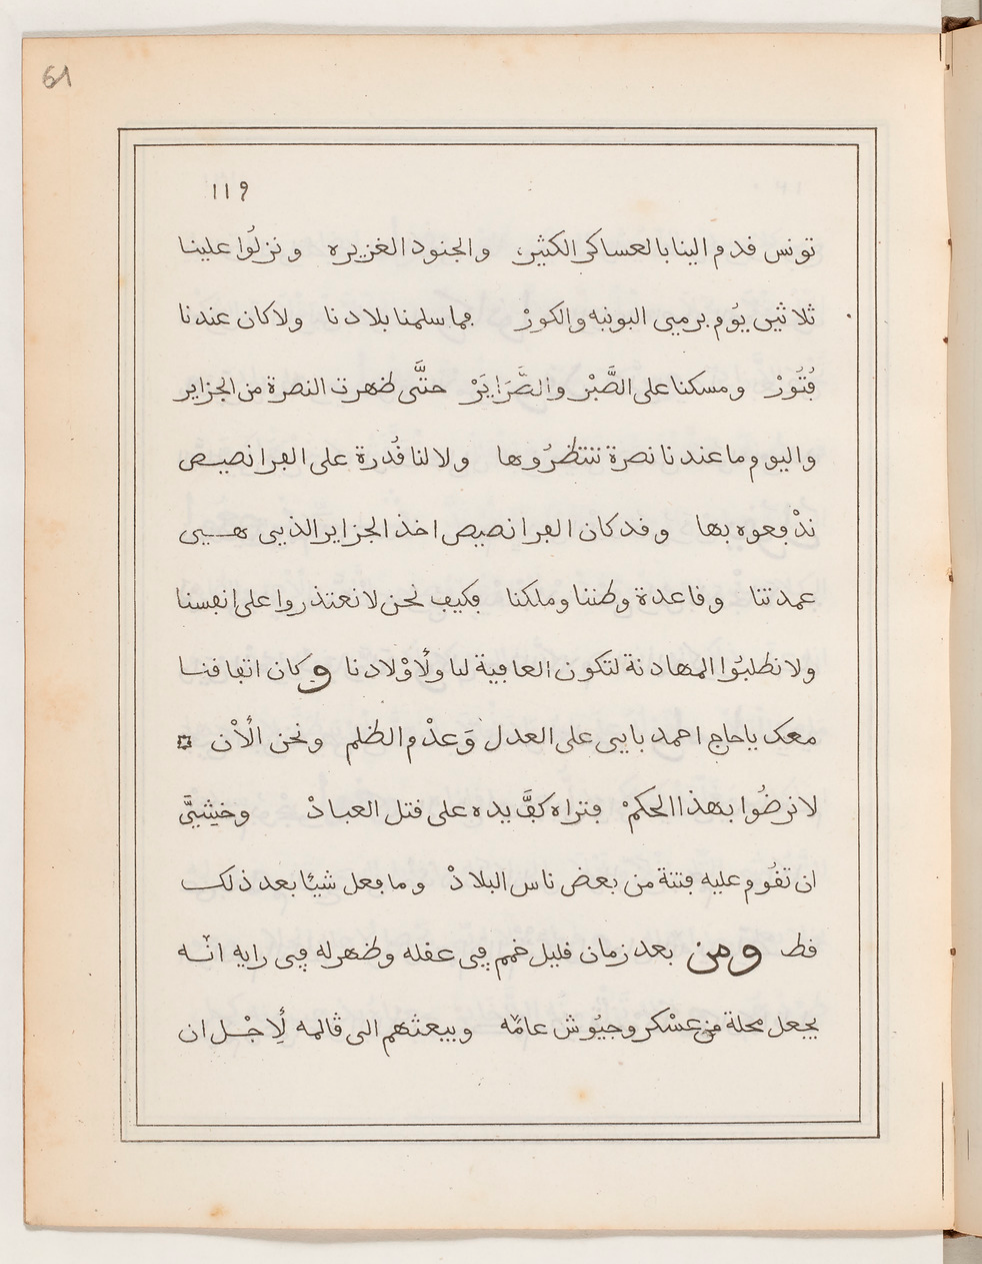 61
119
تونس قدم الينا بالعساكر الكثيره والجنود الغزيره ونزلُوا علينا
ثلاثين يَوُم يرميى البونبه والكورْ فما سلمنا بلادنا ولا كان عندنا
فُتُورْ ومسكنا على الصَّبْر والضَّرَايَرْ حتَّى ظهرت النصرة من الجزاير
واليوم وما عندنا نصرة ننتظرُوها ولا لنا قُدرة على الفرانصيص
ندْفعوه بها وقد كان الفرانصيص اخذ الجزاير الذيى هيى
عمدتنا وقاعدة وطننا وملكنا فكيف نحن لا نعتذروا على انفسنا
ولا نطلبُوا المهادنة لتكون العافية لنا ولأوْلادنا وكان اتفاقنا
معك ياحاج احمد بايى على العدل وَعدْم الظلم ونحن الأن
لا نرضُوا بهذا الحكمْ فتراه كفَّ يده على قتل العبادْ وخشيَّ
ان تقُوم عليه فتنة من بعض ناس البلادْ وما فعل شيئا بعد ذلك
قط ومن بعد زمان قليل خمم فيى عقله وظهر له فيى رايه انّه
يجعل محلة من عسْكر وجيُوش عامّه ويبعثهم الى ڨالمه لِأجْل ان